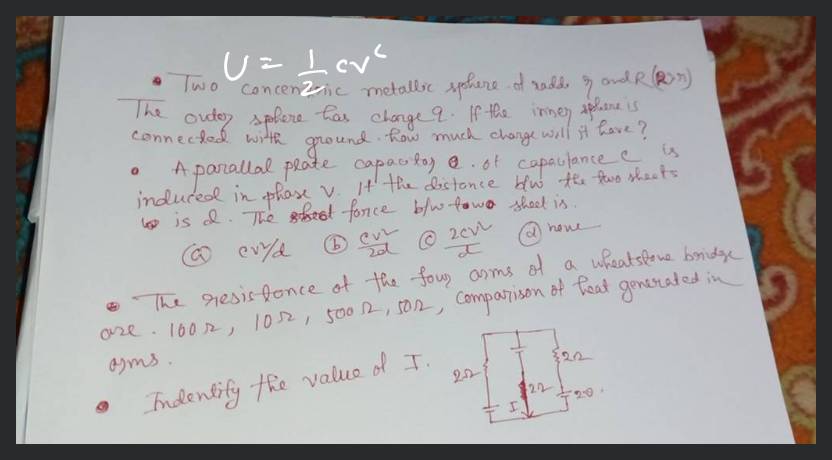 U = 1/2 cv²
• Two concentric metallic sphere of radii r and R (R>r)
The outer sphere has charge q. If the inner sphere is
connected with ground. how much charge will it have?
• A parallal plate capacitor of capacitance c is
induced in phase V. If the distance b/w the two sheets
is d. The force b/w towo sheet is.
(a) cv²/d (b) cv²/2d (c) 2cv²/d (d) none
• The resistance of the four arms of a wheatstone bridge
are. 100Ω, 10Ω, 500Ω, 50Ω, Comparison of heat generated in
arms.
• Indentify the value of I.
2Ω
2Ω
2Ω
I